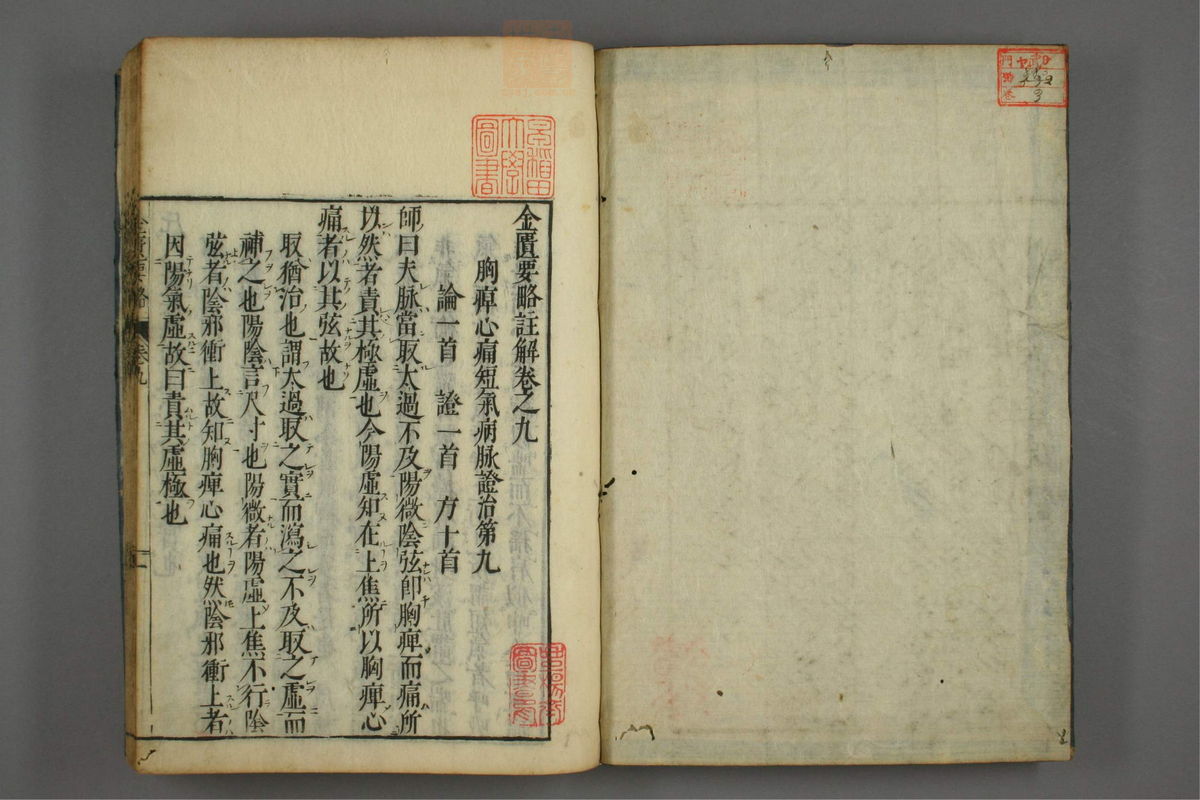 金匱要略註解卷之九
胸痺心痛短氣病脉證治第九
論一首 證一首 方十首
師曰夫脉當取太過不及陽微陰弦卽胸痺而痛所
以然者責其極虛也今陽虛知在上焦所以胸痺心
痛者以其弦故也
取猶治也謂太過取之實而瀉之不及取之虛而
補之也陽陰言尺寸也陽微者陽虛上焦不行陰
弦者陰邪衝上故知胸痺心痛也然陰邪衝上者
因陽氣虛故曰責其虛極也
金匱要略 卷九
早稻田
大學
圖書